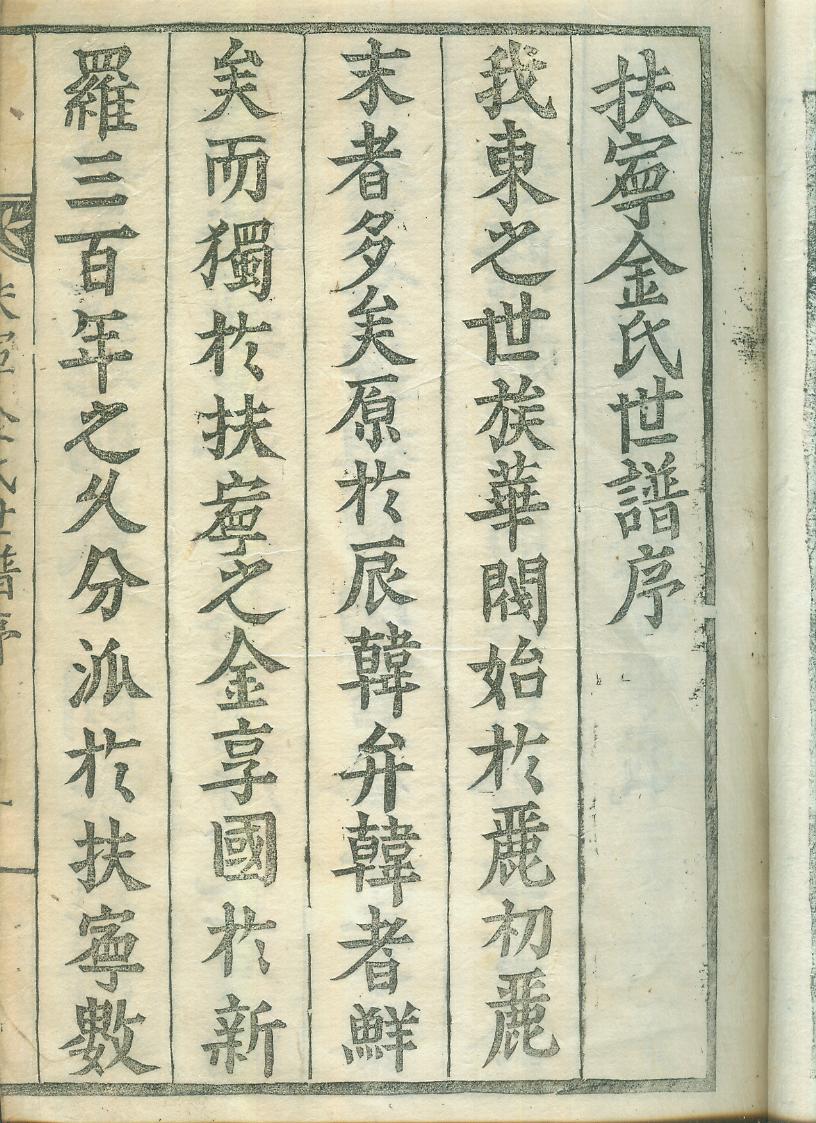 扶寧金氏世譜序
我東之世族華閥始於麗初麗
末者多矣原於辰韓弁韓者鮮
矣而獨於扶寧之金享國於新
羅三百年之久分派於扶寧數
扶寧金氏世譜序